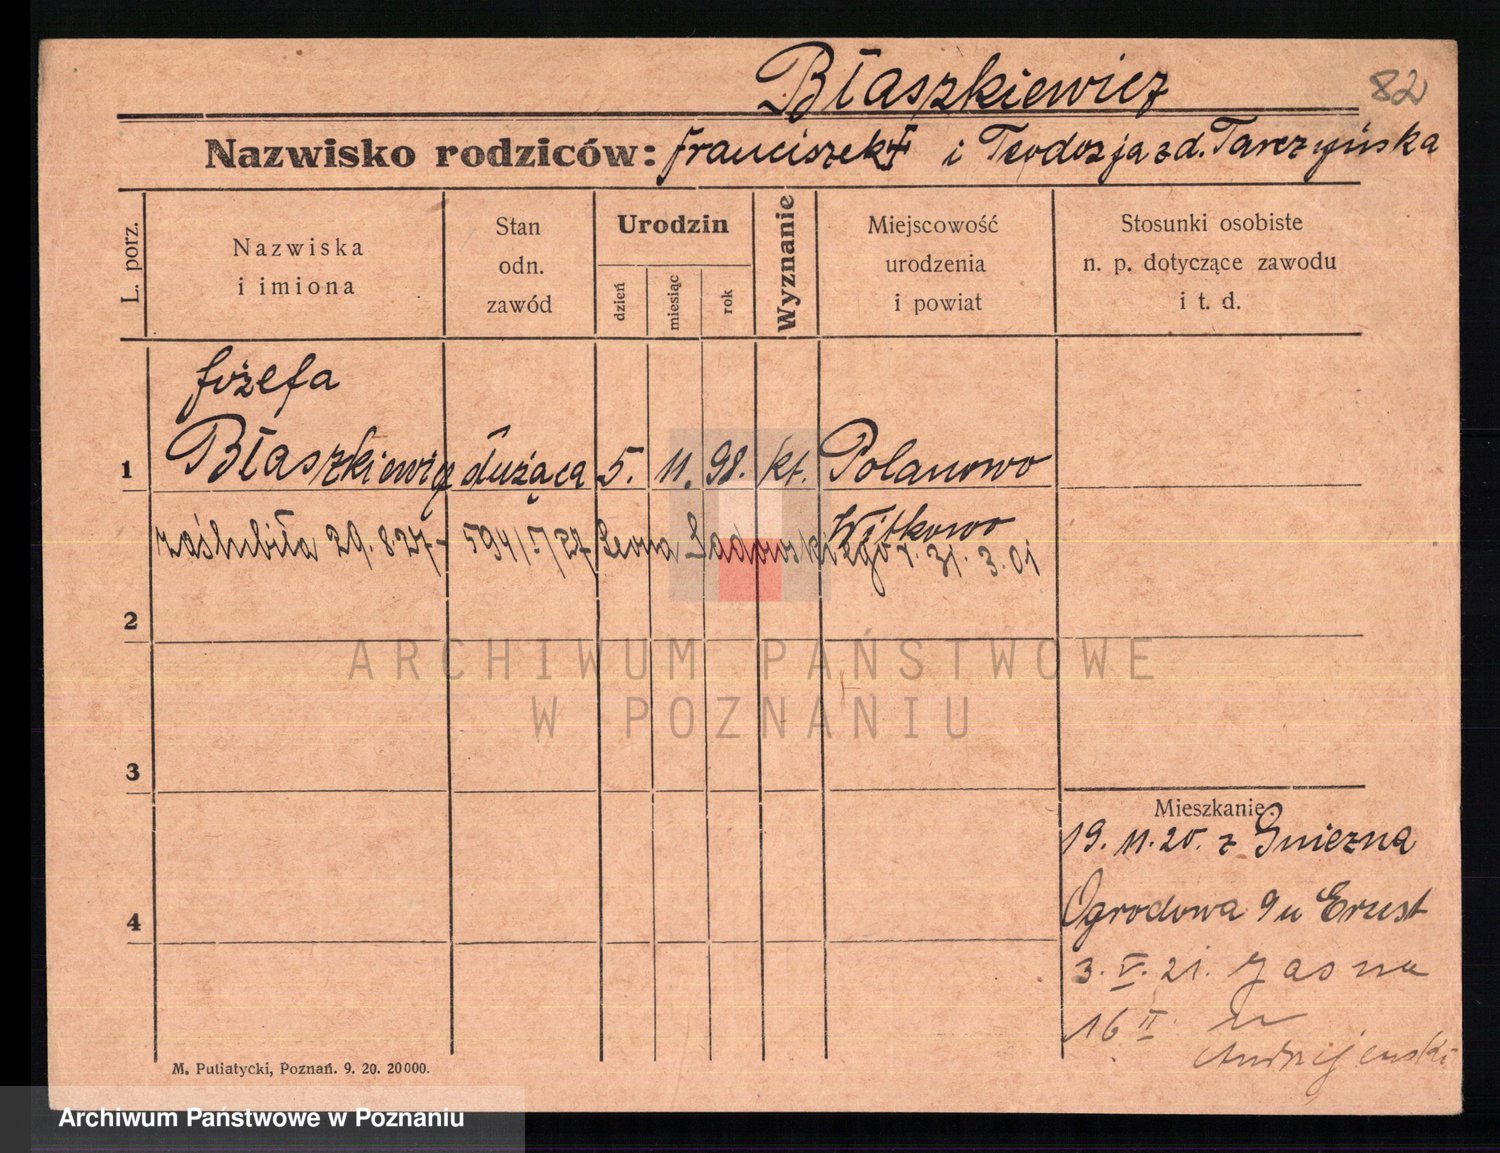 Błaszkiewicz
82
Nazwisko rodziców: Franciszek † i Teodozja zd. Tarczyńska
L. porz.
Nazwiska
i imiona
Stan
odn.
zawód
Urodzin
dzień
miesiąc
rok
Wyznanie
Miejscowość
urodzenia
i powiat
Stosunki osobiste
n. p. dotyczące zawodu
i t. d.
Józefa
1 Błaszkiewicz służąca 5. 11. 98. kt. Polanowo
Witkowo
zaślubiła 29.8.27 - 594/I/27 Leona Sadowskiego r. 31. 3. 01
2
3
4
Mieszkanie:
19. 11. 20. z Gniezna
Ogrodowa 9 u Erzest
3. V. 21. Jasna
16 II u
Andrzejewski
M. Putiatycki, Poznań. 9. 20. 20000.
ARCHIWUM PAŃSTWOWE
W POZNANIU
Archiwum Państwowe w Poznaniu